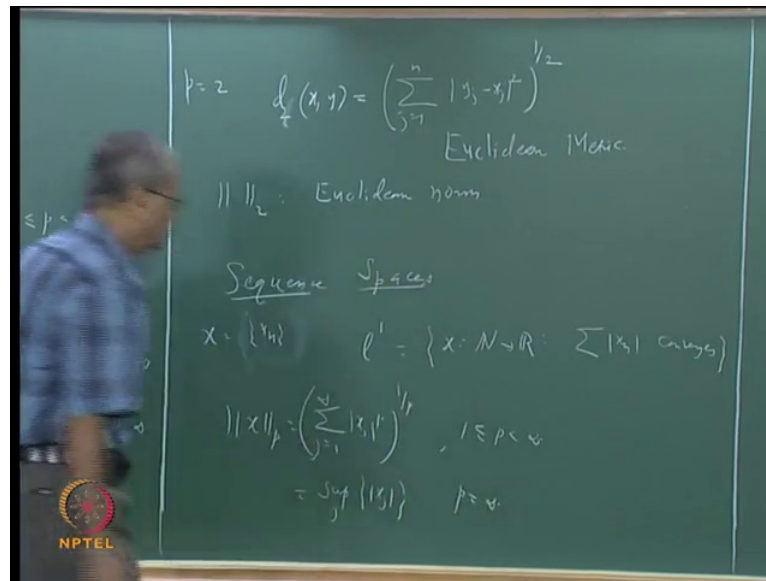 p = 2 d₂(x, y) = ( ∑_{j=1}^{n} |y_j - x_j|² )^{1/2}
Euclidean Metric.
|| ||₂ : Euclidean norm
≤ p <
Sequence Spaces
x = {x_n} l¹ = { x : N → R : ∑ |x_n| converges }
||x||_p = ( ∑_{j=1}^{∞} |x_j|^p )^{1/p} , 1 ≤ p < ∞.
= sup_j {|x_j|} p = ∞.
NPTEL